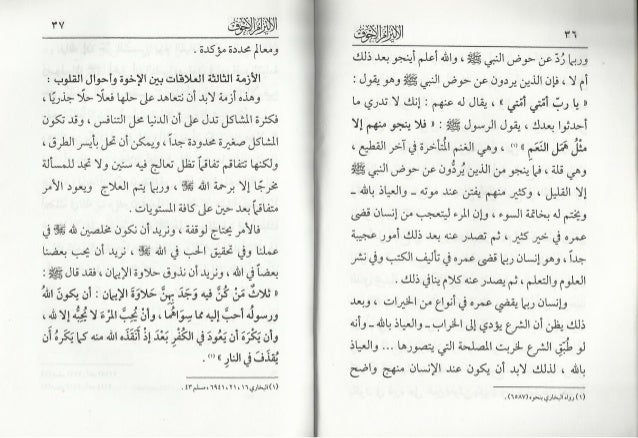 ٣٦
وربما رُدّ عن حوض النبي ﷺ ، والله أعلم أينجو بعد ذلك
أم لا ، فإن الذين يردون عن حوض النبي ﷺ وهو يقول :
« يا ربّ أمّتي أمّتي » ، يقال له عنهم : إنك لا تدري ما
أحدثوا بعدك ، يقول الرسول ﷺ : « فلا ينجو منهم إلا
مثْلُ هَمَل النَّعَم » (١) ، وهي الغنم المُتأخرة في آخر القطيع ،
وهي قلة ، فما ينجو من الذين يُردُّون عن حوض النبي ﷺ
إلا القليل ، وكثير منهم يفتن عند موته ــ والعياذ بالله ــ
ويختم له بخاتمة السوء ، وإن المرء ليتعجب من إنسان قضى
عمره في خير كثير ، ثم تصدر عنه بعد ذلك أمور عجيبة
جداً ، وهو إنسان ربما قضى عمره في تأليف الكتب وفي نشر
العلوم والتعلم ، ثم يصدر عنه كلام ينافي ذلك .
وإنسان ربما يقضي عمره في أنواع من الخيرات ، وبعد
ذلك يظن أن الشرع يؤدي إلى الخراب ــ والعياذ بالله ــ وأنه
لو طُبّق الشرع لخربت المصلحة التي يتصورها ... والعياذ
بالله ، لذلك لابد أن يكون عند الإنسان منهج واضح
(١) رواه البخاري بنحوه (٦٥٨٧) .
٣٧
ومعالم محددة مؤكدة .
الأزمة الثالثة العلاقات بين الإخوة وأحوال القلوب :
وهذه أزمة لابد أن نتعاهد على حلها فعلًا حلًا جذريًا ،
فكثرة المشاكل تدل على أن الدنيا محل التنافس ، وقد تكون
المشاكل صغيرة محدودة جداً ، ويمكن أن تحل بأيسر الطرق ،
ولكنها تتفاقم تفاقماً تظل تعالج فيه سنين ولا تجد للمسألة
مخرجًا إلا برحمة الله ، وربما يتم العلاج ويعود الأمر
متفاقماً بعد حين على كافة المستويات .
فالأمر يحتاج لوقفة ، ونريد أن نكون مخلصين لله في
عملنا وفي تحقيق الحب في الله ، نريد أن يحب بعضنا
بعضاً في الله ، ونريد أن نذوق حلاوة الإيمان ، فقد قال ﷺ :
« ثلاثٌ مَنْ كُنَّ فيه وَجَدَ بِهِنَّ حَلاوَةَ الإيمان : أن يكونَ اللهُ
ورسولُه أحبَّ إليه مما سِوَاهُمَا ، وأنْ يُحِبَّ المرْءَ لا يُحِبُّهُ إلا لله ،
وأن يَكْرَهَ أن يَعُودَ في الكُفْرِ بَعْدَ إذْ أَنْقَذَه الله منه كما يَكْرَهُ أن
يُقْذَفَ في النارِ » (١) .
(١) البخاري ١٦، ٢١، ٦٩٤١ ، مسلم ٤٣ .